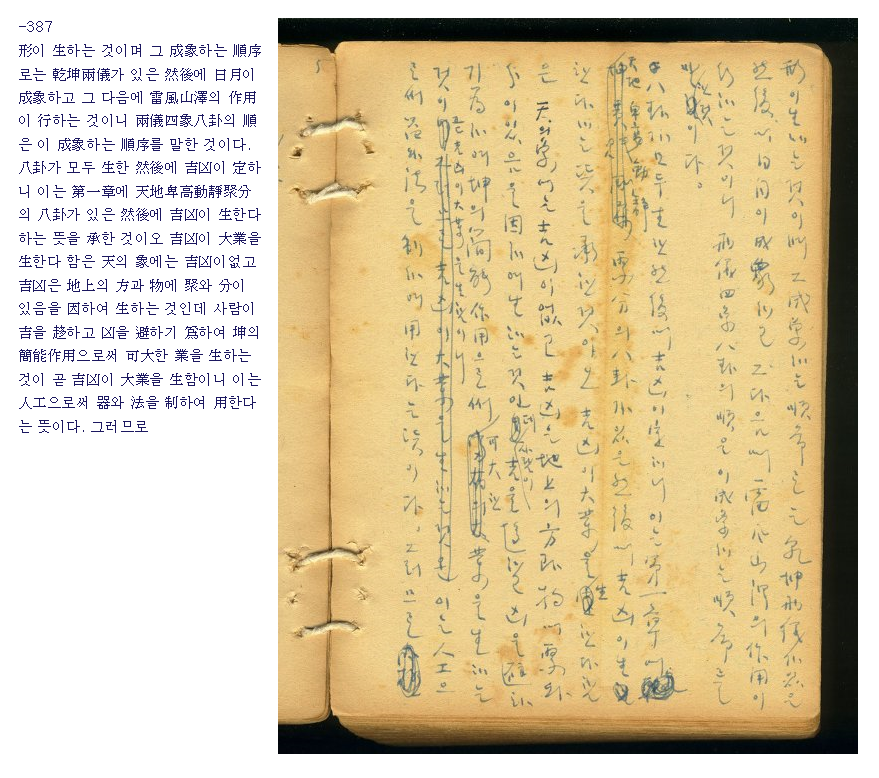 -387
形이 生하는 것이며 그 成象하는 順序
로는 乾坤兩儀가 있은 然後에 日月이
成象하고 그 다음에 雷風山澤의 作用
이 行하는 것이니 兩儀四象八卦의 順
은 이 成象하는 順序를 말한 것이다.
八卦가 모두 生한 然後에 吉凶이 定하
니 이는 第一章에 天地卑高動靜聚分
의 八卦가 있은 然後에 吉凶이 生한다
하는 뜻을 承한 것이오 吉凶이 大業을
生한다 함은 天의 象에는 吉凶이없고
吉凶은 地上의 方과 物에 聚와 分이
있음을 因하여 生하는 것인데 사람이
吉을 趍하고 凶을 避하기 爲하여 坤의
簡能作用으로써 可大한 業을 生하는
것이 곧 吉凶이 大業을 生함이니 이는
人工으로써 器와 法을 制하여 用한다
는 뜻이다. 그러므로
形이 生하는 것이며 그 成象하는 順序로는 乾坤兩儀가 있은
然後에 日月이 成象하고 그 다음에 雷風山澤의 作用이
行하는 것이니 兩儀四象八卦의 順은 이 成象하는 順序를
말한 것이다.
八卦가 모두 生한 然後에 吉凶이 定하니 이는 第一章에
天地 卑高 動靜 聚分의 八卦가 있은 然後에 吉凶이 生
한다하는 뜻을 承한 것이오 吉凶이 大業을 生한다함
은 天의 象에는 吉凶이 없고 吉凶은 地上의 方과 物에 聚와
分이 있음을 因하여 生하는 것인데 사람이 吉을 趍하고 凶을 避하
기 爲하여 坤의 簡能作用으로써 可大한 業을 生하는
것이 곧 吉凶이 大業을 生함이니 이는 人工으
로써 器와 法을 制하여 用한다는 뜻이다. 그러므로